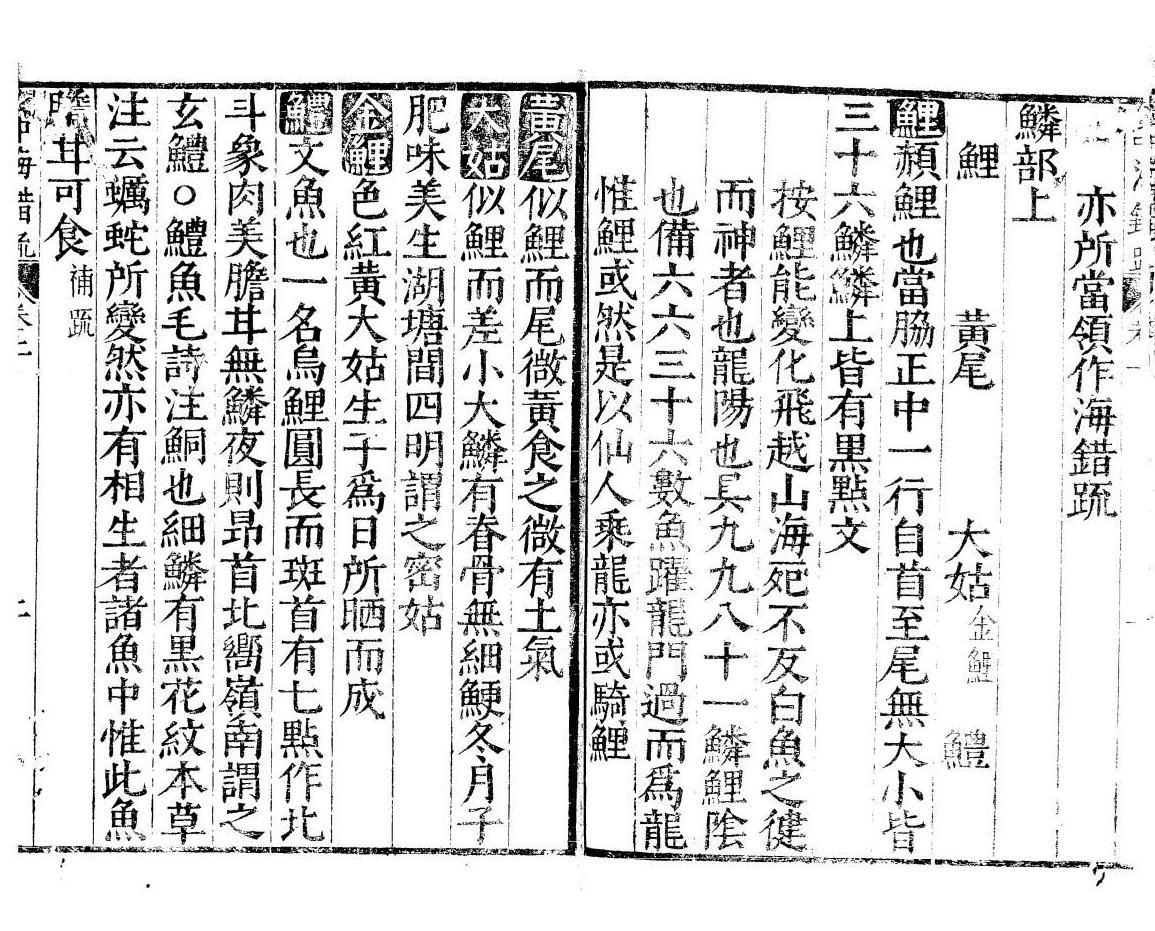 亦所當領作海錯䟽
鱗部上
鯉 黃尾 大姑金鯉 鱧
鯉頳鯉也當脇正中一行自首至尾無大小皆
三十六鱗鱗上皆有黑點文
按鯉能變化飛越山海死不反白魚之健
而神者也龍陽也具九九八十一鱗鯉陰
也備六六三十六數魚躍龍門過而爲龍
惟鯉或然是以仙人乘龍亦或騎鯉
黃尾似鯉而尾微黃食之微有土氣
大姑似鯉而差小大鱗有脊骨無細鯁冬月子
肥味美生湖塘間四明謂之密姑
金鯉色紅黃大姑生子爲日所晒而成
鱧文魚也一名烏鯉圓長而斑首有七點作北
斗象肉美膽甘無鱗夜則昂首北嚮嶺南謂之
玄鱧○鱧魚毛詩注鮦也細鱗有黑花紋本草
注云蠣蛇所變然亦有相生者諸魚中惟此魚
膽甘可食補䟽
海錯䟽 卷二